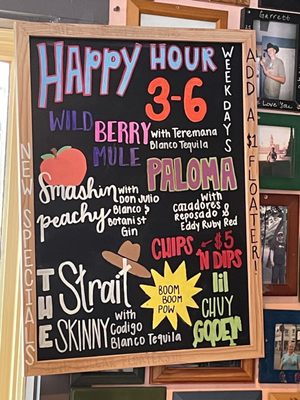 HAPPY HOUR
3-6
WEEKDAYS
WILD
BERRY
MULE
with Teremana
Blanco Tequila
Smashin
peachy
with
Don Julio
Blanco &
Botanist
Gin
PALOMA
with
Cazadores
Reposado &
Eddy Ruby Red
CHIPS
'N DIPS
$5
THE
Strait
SKINNY
with
Codigo
Blanco Tequila
BOOM
BOOM
POW
lil
CHUY
GOOEY
NEW SPECIALS
ADD A $1 FLOATER!
GARRETT
I Love You